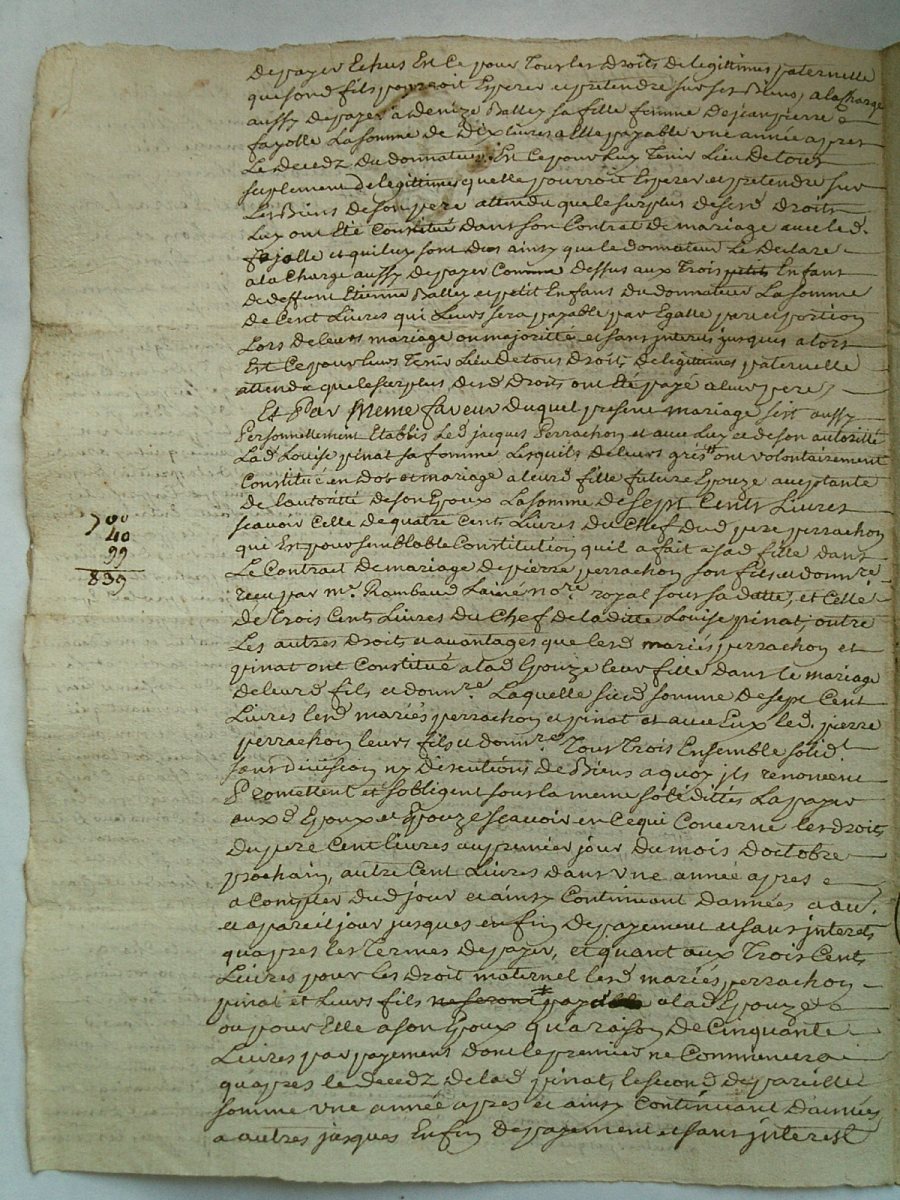 de payer Echus Est Ce pour Tous les Droits de legittimes paternelle
que sond fils pourroit Esperer et pretendre sur ses Biens, a la charge
aussy de payer a Denize Balley sa fille femme de jean pierre
fayolle La somme de Dix livres a Elle payable une année apres
Le Decedz du donnateur. Est Ce pour luy Tenir Lieu de tout
suplement de legittimes quelle pourroit Esperer et pretendre sur
Les Biens de son pere attendu que le surplus de sesd Droits
Luy ont Eté Constitué dans son Contrat de mariage avec led.
fajolle et qui luy sont dus ainsy que le donnateur Le Declare
a la Charge aussy de payer Comme dessus aux Trois petits Enfant
de deffunt Etienne Balley et petit Enfans du donnateur La somme
de Cent Livres qui Leurs sera payable par Egalle part et portion
Lors de leurs mariage ou majorité et sans interets jusques alors
Est Ce pour leurs Tenir Lieu de tous Droits de legittimes paternelle
attendu que le surplus desd Droits ont Eté payé a leur pere,
Et Par meme faveur duquel present mariage sest aussy
Personnellement Etablis Led jacques Perrachon et avec Luy et de son autoritté
Lad Louise pinat sa femme Lesquels de leurs grés ont volontairement
Constitué en Dot et mariage a leurd fille future Epouze acceptante
de Lautoritté de son Epoux La somme de sept Cents Livres
scavoir Celle de quatre Cents Livres du Chef dud pere perrachon
qui Est pour semblable Constitution quil a fait a sad fille dans
Le Contrait de mariage de pierre perrachon son fils et donnre
reçu par mr. Rambaud Lainé nore. royal sous sa datte, et Celle
de Trois Cents Livres du Chef de laditte Louise pinat, outre
Les autres Droits et avantages que lesd mariés perrachon et
pinat ont Constitué a lad Epouze leur fille dans le mariage
de leurd fils et donnre. Laquelle susd somme de sept Cent
Livres lesd mariés perrachon et pinat et avec Eux led. pierre
perrachon leurs fils et donnre Tous Trois Ensemble solidt
sans division ny Discutions de Biens a quoy ils renoncent
Promettent et sobligent sous la meme solidittés La payer
auxd Epoux et Epouze scavoir en Ce qui Concerne les droit
du pere Cent livres au premier jour du mois doctobre
prochain, autre Cent Livres dans une année apres
a Compter dud jour et ainsy Continuant dannées a au.
et a pareil jour jusques en fin de payement et sans interets
quapres les Termes de payer, et quant aux Trois Cents
Livres pour les droit maternel lesd mariés perrachon
pinat et Leurs fils ne seront a lad Epouze
ou pour Elle a son Epoux qua raison de Cinquante
Livres par payement dont le premier ne Commencera
quapres le decedz de lad pinat, le second de pareille
somme une année apres et ainsy Continuant dannées
a autres jusques En fin de payement et sans interest
700
40
99
839